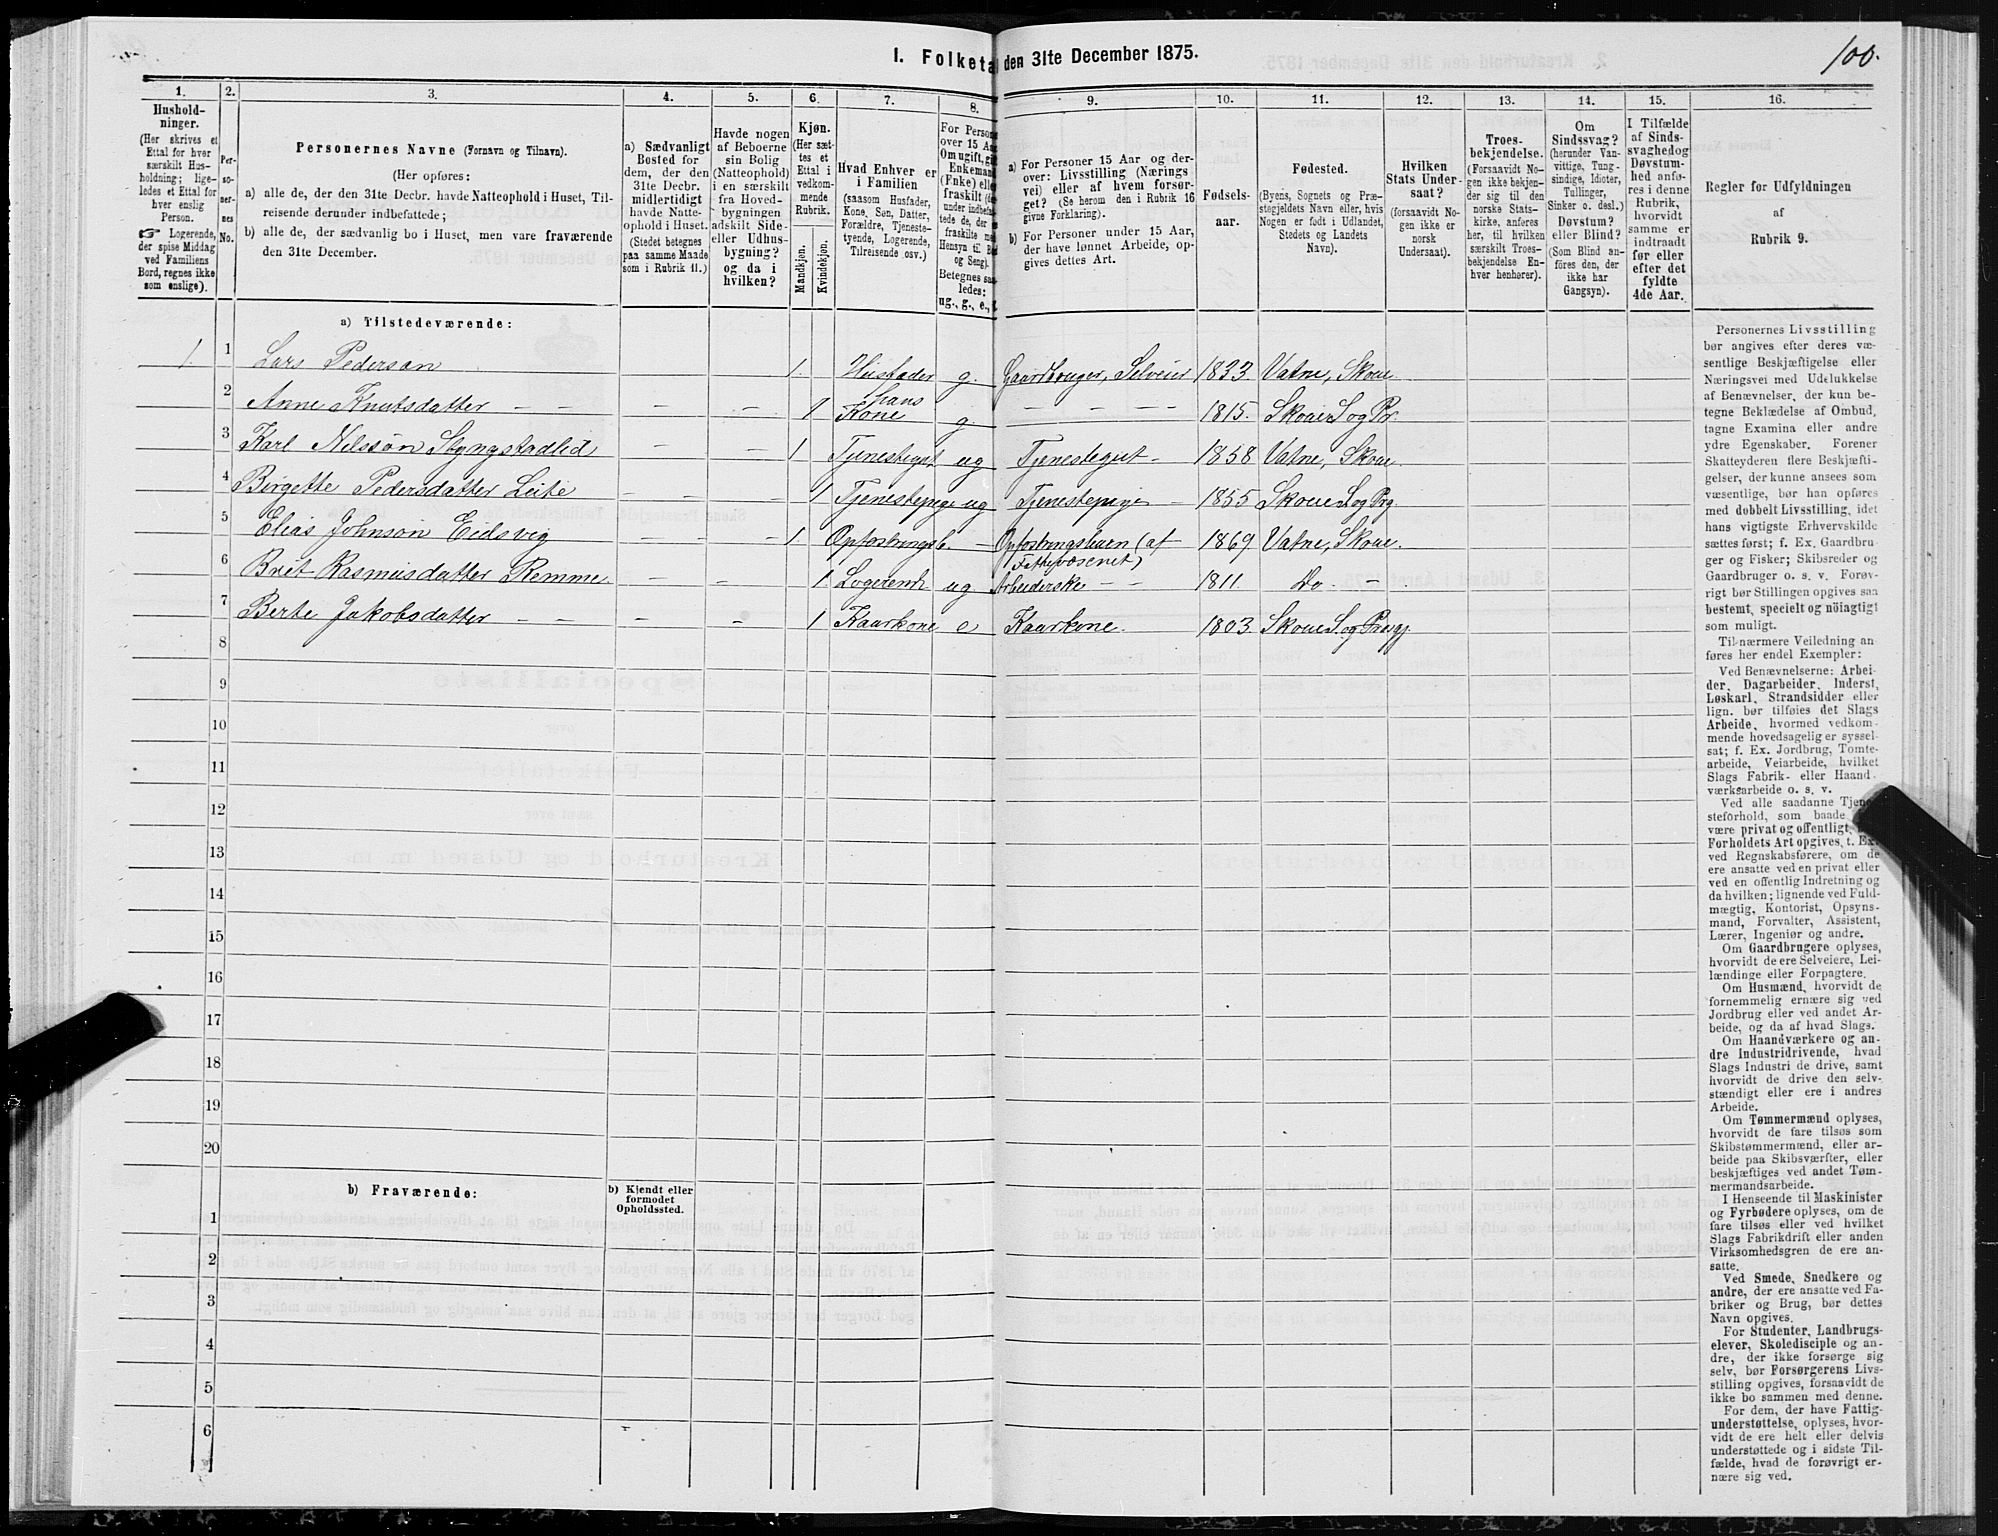 100.
1. Folketa den 31te December 1875.
1. 2. 3. 4. 5. 6. 7. 8. 9. 10. 11. 12. 13. 14. 15. 16.
Hushold-
ninger.
(Her skrives et
Ettal for hver
særskilt Hus-
holdning; lige-
ledes et Ettal for
hver enslig
Person.
☞ Logerende,
der spise Middag
ved Familiens
Bord, regnes ikke
som enslige).
Per-
so-
ner-
nes
No.
Personernes Navne (Fornavn og Tilnavn).
(Her opføres:
a) alle de, der den 31te Decbr. havde Natteophold i Huset, Til-
reisende derunder indbefattede;
b) alle de, der sædvanlig bo i Huset, men vare fraværende
den 31te December.
a) Sædvanligt
Bosted for
dem, der den
31te Decbr.
midlertidigt
havde Natte-
ophold i Huset.
(Stedet betegnes
paa samme Maade
som i Rubrik 11.)
Havde nogen
af Beboerne
sin Bolig
(Natteophold)
i en særskilt
fra Hoved-
bygningen
adskilt Side-
eller Udhus-
bygning?
og da i
hvilken?
Kjøn.
(Her sæt-
tes et
Ettal i
vedkom-
mende
Rubrik.
Mandkjøn.
Kvindekjøn.
Hvad Enhver er
i Familien
(saasom Husfader,
Kone, Søn, Datter,
Forældre, Tjeneste-
tyende, Logerende,
Tilreisende osv.)
For Person
over 15 Aa
Om ugift, gif
Enkemand
(Enke) elle
fraskilt (de
under indbefa
tede de, der
fraskilte me
Hensyn til B
og Seng).
Betegnes saa
ledes:
ug., g., e., f.
a) For Personer 15 Aar og der-
over: Livsstilling (Nærings
vei) eller af hvem forsør-
get? (Se herom den i Rubrik 16
givne Forklaring).
b) For Personer under 15 Aar,
der have lønnet Arbeide, op-
gives dettes Art.
Fødsels-
aar.
Fødested.
(Byens, Sognets og Præ-
stegjeldets Navn eller, hvis
Nogen er født i Udlandet,
Stedets og Landets
Navn).
Hvilken
Stats Under-
saat?
(forsaavidt No-
gen ikke er
norsk
Undersaat).
Troes-
bekjendelse.
(Forsaavidt No-
gen ikke bekjen-
der sig til den
norske Stats-
kirke, anføres
her, til hvilken
særskilt Troes-
bekjendelse En-
hver henhører).
Om
Sindssvag?
(herunder Van-
vittige, Tung-
sindige, Idioter,
Tullinger,
Sinker o. desl.)
Døvstum?
eller Blind?
(Som Blind an-
føres den, der
ikke har
Gangsyn).
I Tilfælde
af Sinds-
svaghed og
Døvstum-
hed anfø-
res i denne
Rubrik,
hvorvidt
samme er
indtraadt
før eller
efter det
fyldte
4de Aar.
Regler for Udfyldningen
af
Rubrik 9.
a) Tilstedeværende:
1. 1 Lars Pederson 1. Husfader g. Gaardbruger, Selveier 1833 Vatne, Skoue
2 Anne Knutsdatter – – – – 1 Hans Kone g. – – – – 1815. Skoue S og Pr.
3 Karl Nilsson Slyngstadlid – – 1 Tjenestegut ug Tjenestegut – 1858 Vatne, Skoue.
4 Birgette Pedersdatter Leite – – – 1 Tjenestepige ug Tjenestepige – 1855 Skoue S og Prg.
5 Elias Johnson Eidsvig – – 1 Opfostringsb. – Opfostringsbarn (af 1869. Vatne, Skoue.
Fattigvæsenet)
6 Brit Rasmusdatter Remme – – – 1 Logerende ug Arbeiderske – – 1811. Do –
7 Berte Jakobsdatter – – – – 1 Kaarkone e Kaarkone. 1803. Skoue S. og Præsgj.
8
9
10
11
12
13
14
15
16
17
18
19
20
b) Fraværende:
b) Kjendt eller
formodet
Opholdssted.
1
2
3
4
5
6
Personernes Livsstilling
bør angives efter deres væ-
sentlige Beskjæftigelse eller
Næringsvei med Udelukkelse
af Benævnelser, der kun be-
tegne Beklædelse af Ombud,
tagne Examina eller andre
ydre Egenskaber. Forener
Skatteyderen flere Beskjæfti-
gelser, der kunne ansees som
væsentlige, bør han opføres
med dobbelt Livsstilling, idet
hans vigtigste Erhvervskilde
sættes først; f. Ex. Gaardbru-
ger og Fisker; Skibsreder og
Gaardbruger o. s. v. Forøv-
rigt bør Stillingen opgives saa
bestemt, specielt og nöiagtigt
som muligt.
Til nærmere Veiledning an-
føres her endel Exempler:
Ved Benævnelserne: Arbei-
der, Dagarbeider, Inderst,
Løskarl, Strandsidder eller
lign. bør tilføies det Slags
Arbeide, hvormed vedkom-
mende hovedsagelig er syssel-
sat; f. Ex. Jordbrug, Tomte-
arbeide, Veiarbeide, hvilket
Slags Fabrik- eller Haand-
værksarbeide o. s. v.
Ved alle saadanne Tjene-
steforhold, som baade
være privat og offentligt,
Forholdets Art opgives, t. Ex.
ved Regnskabsførere, om de
ere ansatte ved en privat eller
ved en offentlig Indretning og
da hvilken; lignende ved Fuld-
mægtig, Kontorist, Opsyns-
mand, Forvalter, Assistent,
Lærer, Ingeniør og andre.
Om Gaardbrugere oplyses,
hvorvidt de ere Selveiere, Lei-
lændinge eller Forpagtere.
Om Husmænd, hvorvidt de
fornemmelig ernære sig ved
Jordbrug eller ved andet Ar-
beide, og da af hvad Slags.
Om Haandværkere og an-
dre Industridrivende, hvad
Slags Industri de drive, samt
hvorvidt de drive den selv-
stændigt eller ere i andres
Arbeide.
Om Tømmermænd oplyses,
hvorvidt de fare tilsøs som
Skibstømmermænd, eller ar-
beide paa Skibsværfter, eller
beskjæftiges ved andet Tøm-
mermandsarbeide.
I Henseende til Maskinister
og Fyrbødere oplyses, om de
fare tilsøs eller ved hvilket
Slags Fabrikdrift eller anden
Virksomhedsgren de ere an-
satte.
Ved Smede, Snedkere og
andre, der ere ansatte ved Fa-
briker og Brug, bør dettes
Navn opgives.
For Studenter, Landbrugs-
elever, Skoledisciple og an-
dre, der ikke forsørge sig
selv, bør Forsørgerens Livs-
stilling opgives, forsaavidt de
ikke bo sammen med denne.
For dem, der have Fattig-
understøttelse, oplyses, hvor-
vidt de ere helt eller delvis
understøttede og i sidste Til-
fælde, hvad de forøvrigt er-
nære sig ved.